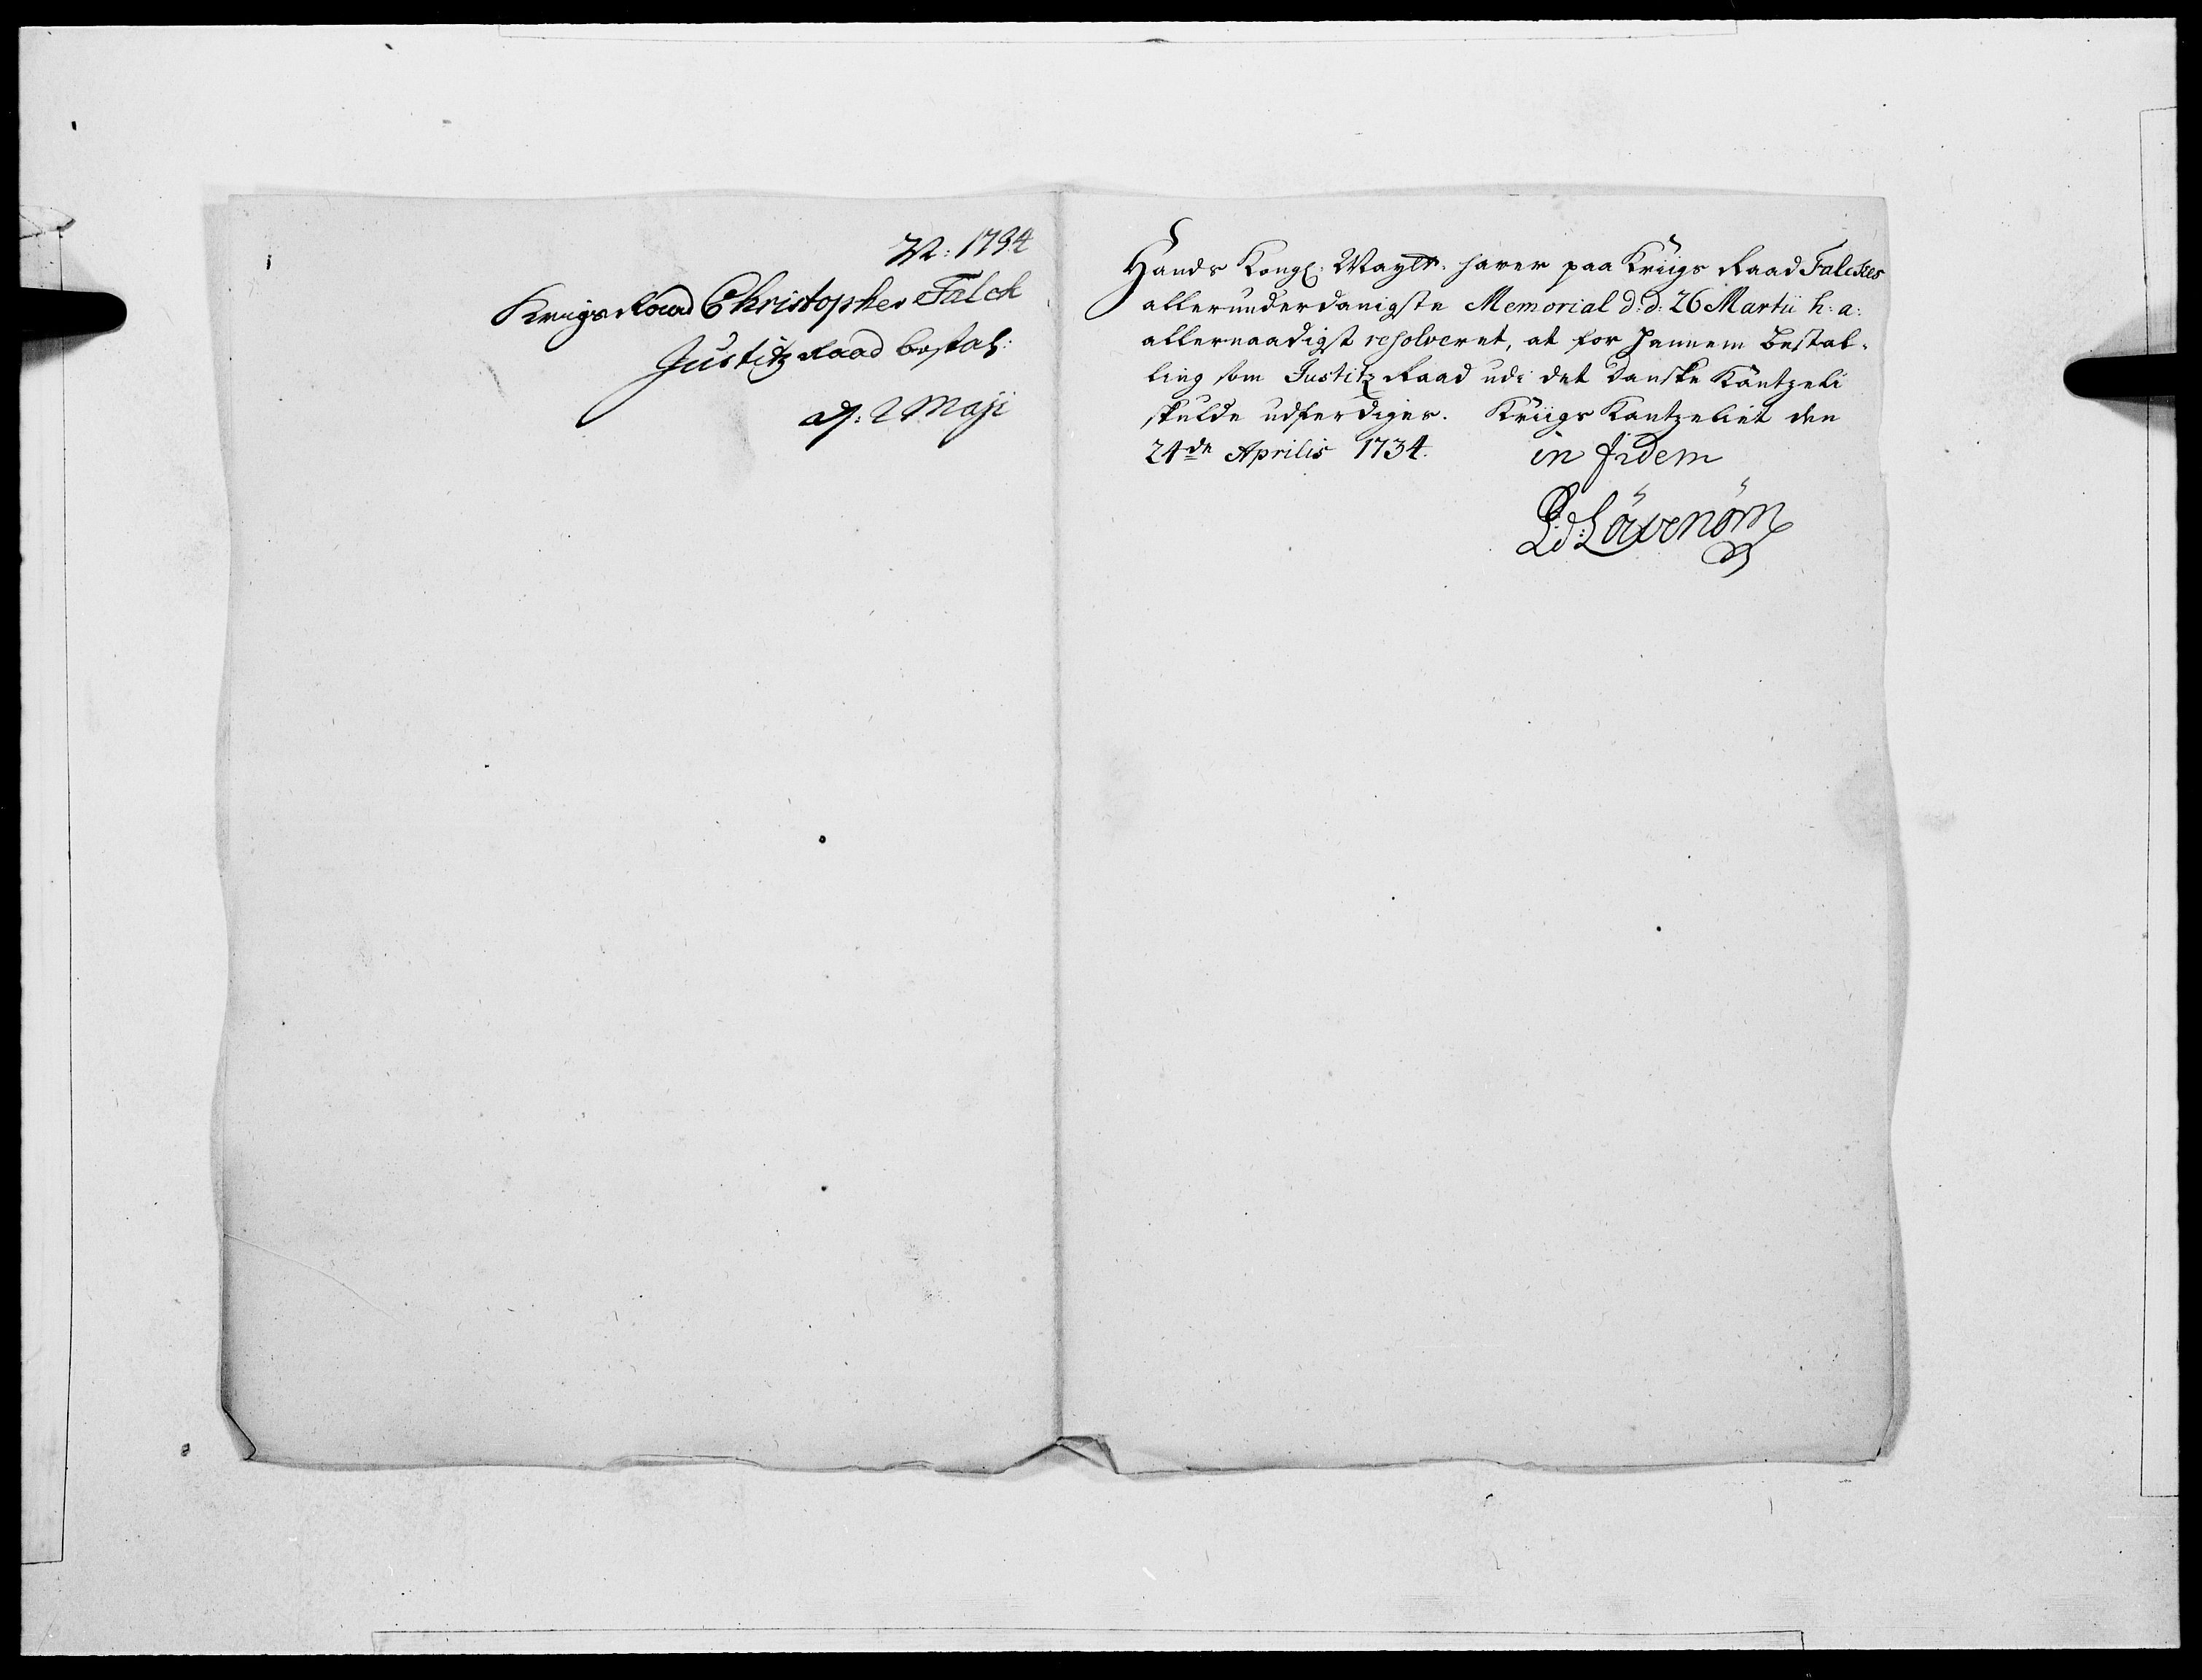 1734
Krigs Raad Christopher Falck
Justitz Raad bestal:
d: 2 Maji
Hands Kongl: Maytt: haver paa Kriigs Raad Falckes
allerunderdanigste Memorial d: d: 26 Martii h: a:
allernaadigst resolveret, at for hannem Bestal-
ling som Justitz Raad udi det danske Cantzeli
skulde udferdiges. Kriigs Cantzeliet den
24de Aprilis 1734.
in fidem
P: d: Lövenörn